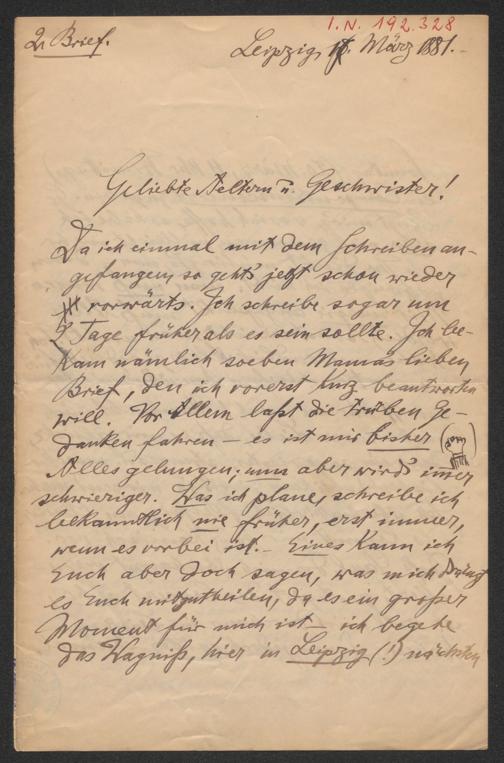 I.N. 192.328
2. Brief.
Leipzig, März 1881.-
Geliebte Aeltern u. Geschwister!
Da ich einmal mit dem Schreiben an-
gefangen, so geht's jetzt schon wieder
vorwärts. Ich schreibe sogar um
Tage früher als es sein sollte. Ich be-
kam nämlich soeben Mamas lieben
Brief, den ich vorerst kurz beantworten
will. Vor Allem laßt die trüben Ge-
danken fahren – es ist mir bisher
Alles gelungen; nun aber wird's immer
schwieriger. Was ich plane, schreibe ich
bekanntlich nie früher, erst immer,
wenn es vorbei ist.- Eines kann ich
Euch aber doch sagen, was mich drängt
es Euch mitzutheilen, da es ein großer
Moment für mich ist – ich begehe
das Wagniß, hier in Leipzig (!) nächsten